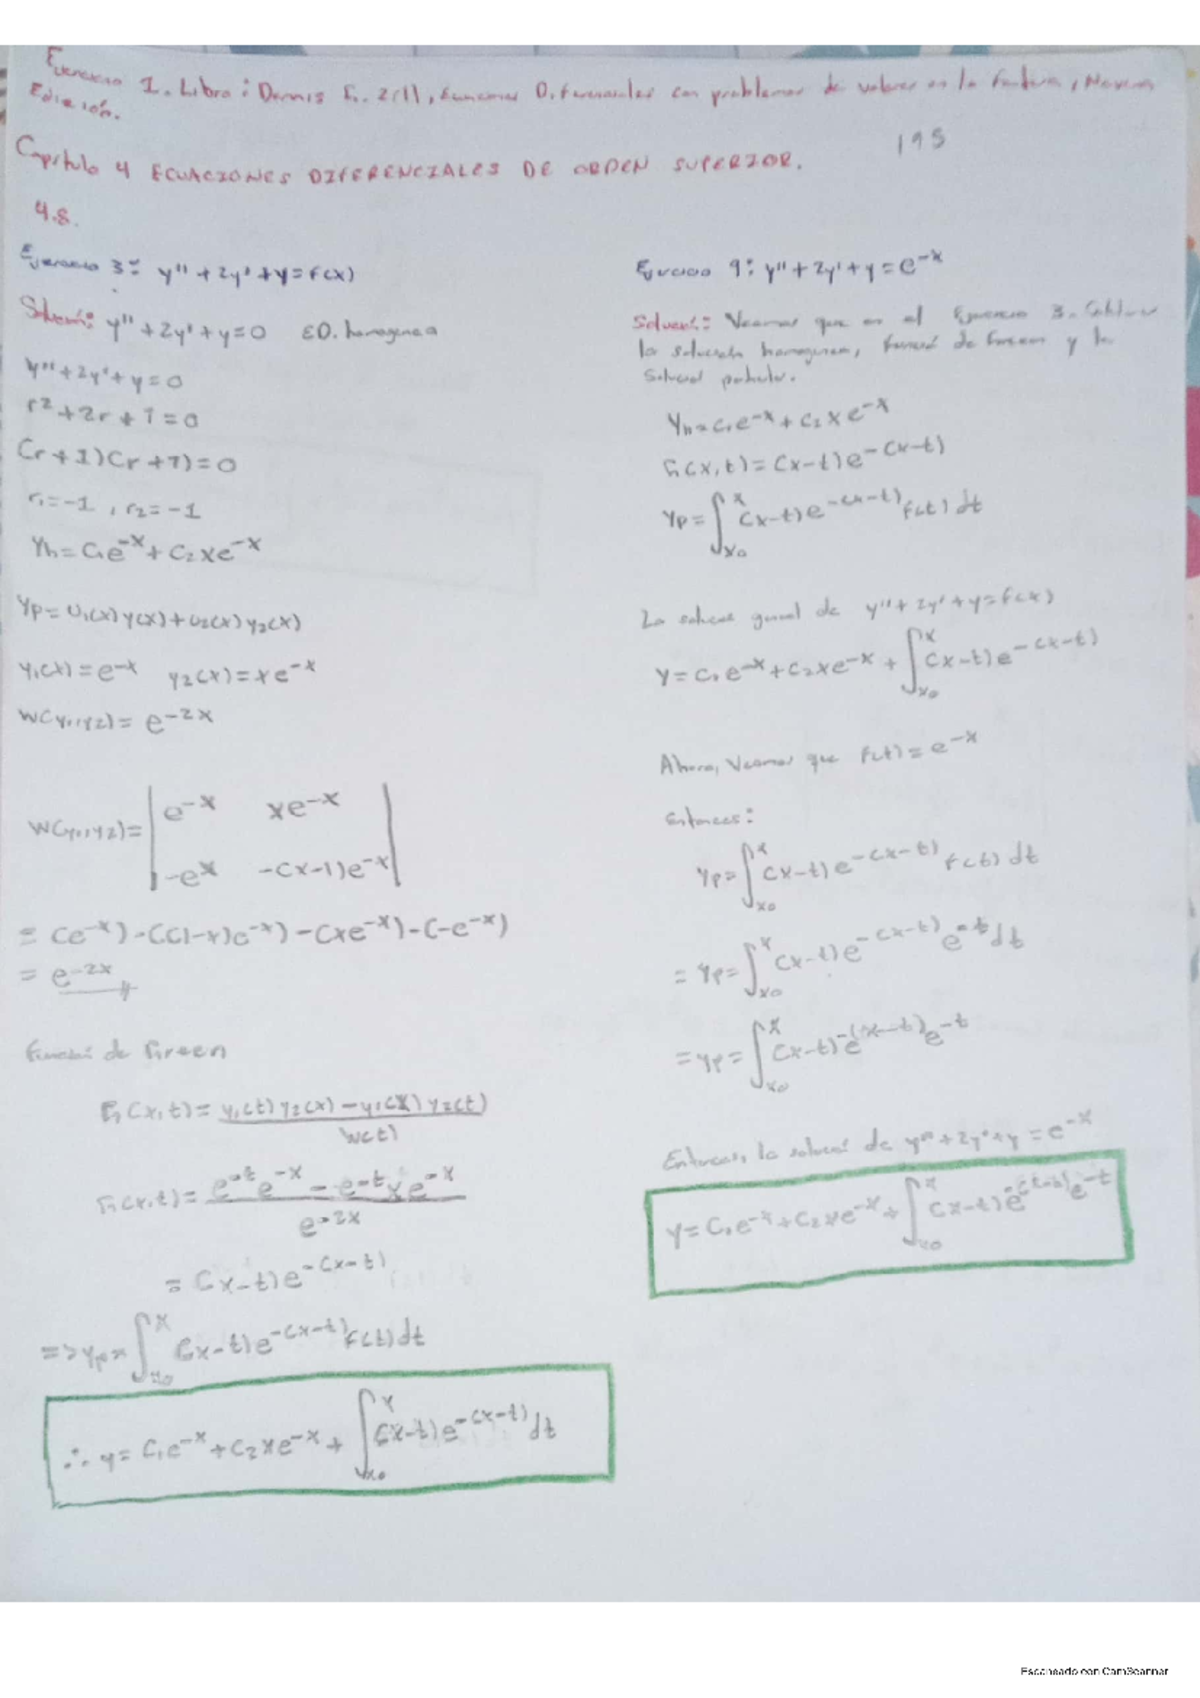 Ejercicio 1. Libro: Dennis G. Zill, Ecuaciones Diferenciales con problemas de valores en la frontera, Novena
Edición.
195
Capitulo 4 ECUACIONES DIFERENCIALES DE ORDEN SUPERIOR.
4.8.
Ejercicio 3: y'' + 2y' + y = f(x)
Solución: y'' + 2y' + y = 0 ED. homogenea
y'' + 2y' + y = 0
r² + 2r + 1 = 0
(r + 1)(r + 1) = 0
r₁ = -1 , r₂ = -1
Yh = C₁e^-x + C₂xe^-x
Yp = U₁(x) y(x) + U₂(x) y₂(x)
y₁(x) = e^-x y₂(x) = xe^-x
W(y₁,y₂) = e^-2x
W(y₁,y₂) = | e^-x xe^-x |
| -e^x -(x-1)e^-x |
= (e^-x) - ((1-x)e^-x) - (xe^-x) - (-e^-x)
= e^-2x
Función de Green
G(x,t) = y₁(t) y₂(x) - y₁(x) y₂(t)
W(t)
G(x,t) = e^-t e^-x - e^-t x e^-x
e^-2x
= (x-t)e^-(x-t)
=> yp = ∫ₓ₀^x (x-t)e^-(x-t) f(t) dt
∴ y = C₁e^-x + C₂xe^-x + ∫ₓ₀^x (x-t)e^-(x-t) dt
Ejercicio 9: y'' + 2y' + y = e^-x
Solución: Veamos que en el Ejercicio 3.
la solución homogenea, función de Green y la
Solución particular.
Yh = C₁e^-x + C₂xe^-x
G(x,t) = (x-t)e^-(x-t)
Yp = ∫ₓ₀^x (x-t)e^-(x-t) f(t) dt
La solución general de y'' + 2y' + y = f(x)
Y = C₁e^-x + C₂xe^-x + ∫ₓ₀^x (x-t)e^-(x-t)
Ahora, Veamos que f(t) = e^-x
Entonces:
Yp = ∫ₓ₀^x (x-t)e^-(x-t) f(t) dt
= Yp = ∫ₓ₀^x (x-t)e^-(x-t) e^-t dt
= yp = ∫ₓ₀^x (x-t)e^-(x-t) e^-t
Entonces, la solución de y'' + 2y' + y = e^-x
Escaneado con CamScanner